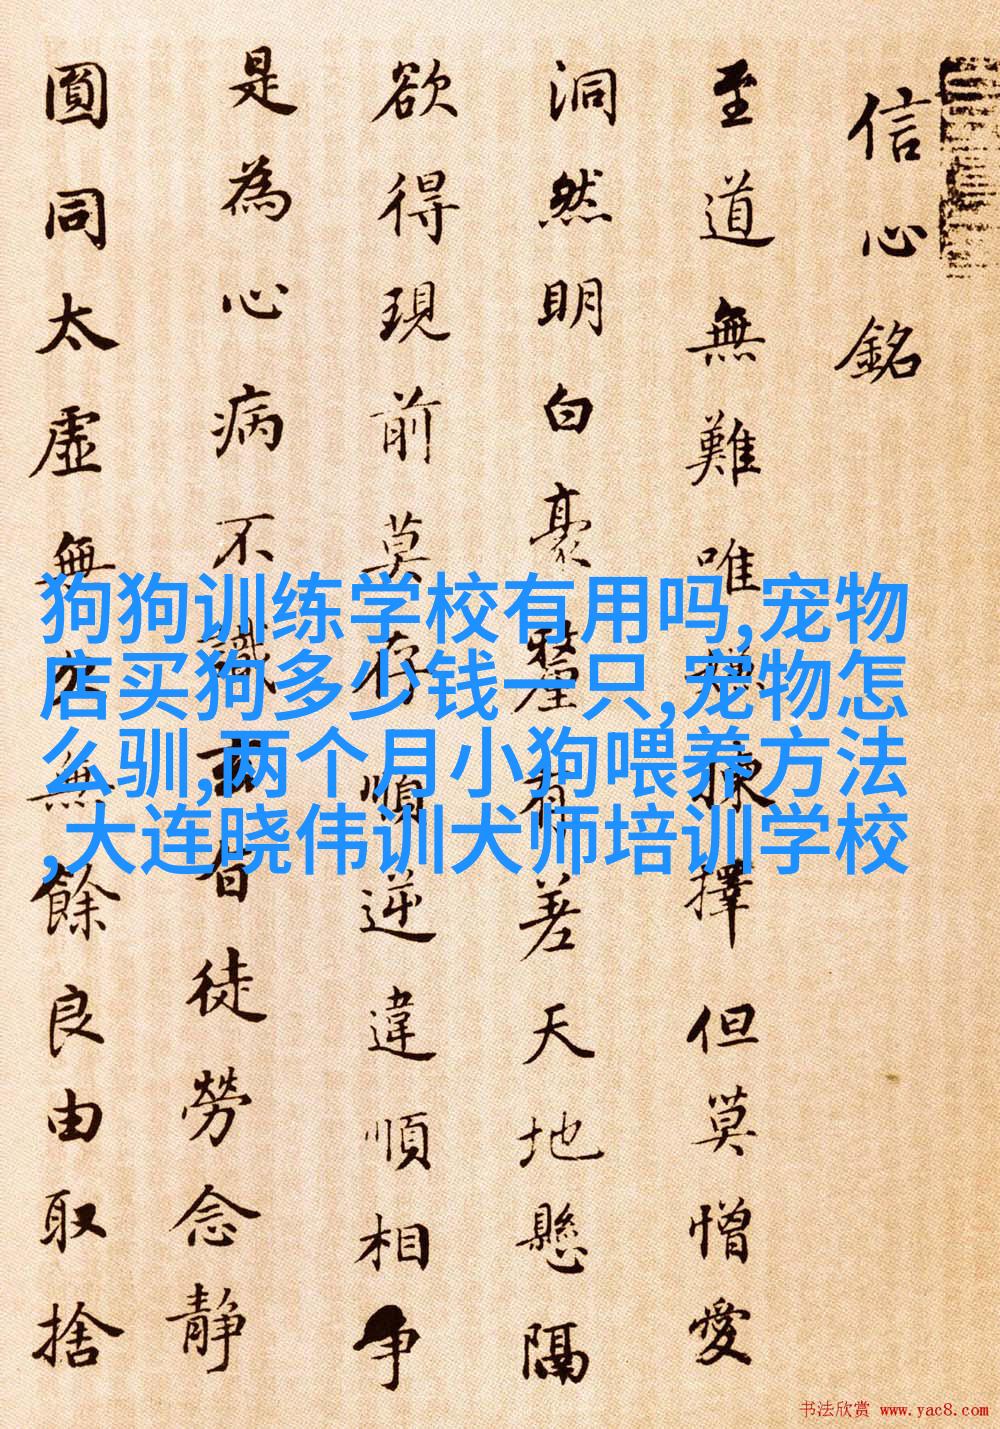 信心銘
至道無難唯嫌揀擇但莫憎愛
洞然明白豪釐有差天地懸隔
欲得現前莫存順逆違順相争
是為心病不識玄旨徒勞念静
圓同太虛無欠無餘良由取捨
狗狗训练学校有用吗,宠物
店买狗多少钱一只,宠物怎
么驯,两个月小狗喂养方法
,大连晓伟训犬师培训学校
书法欣赏 www.yac8.com